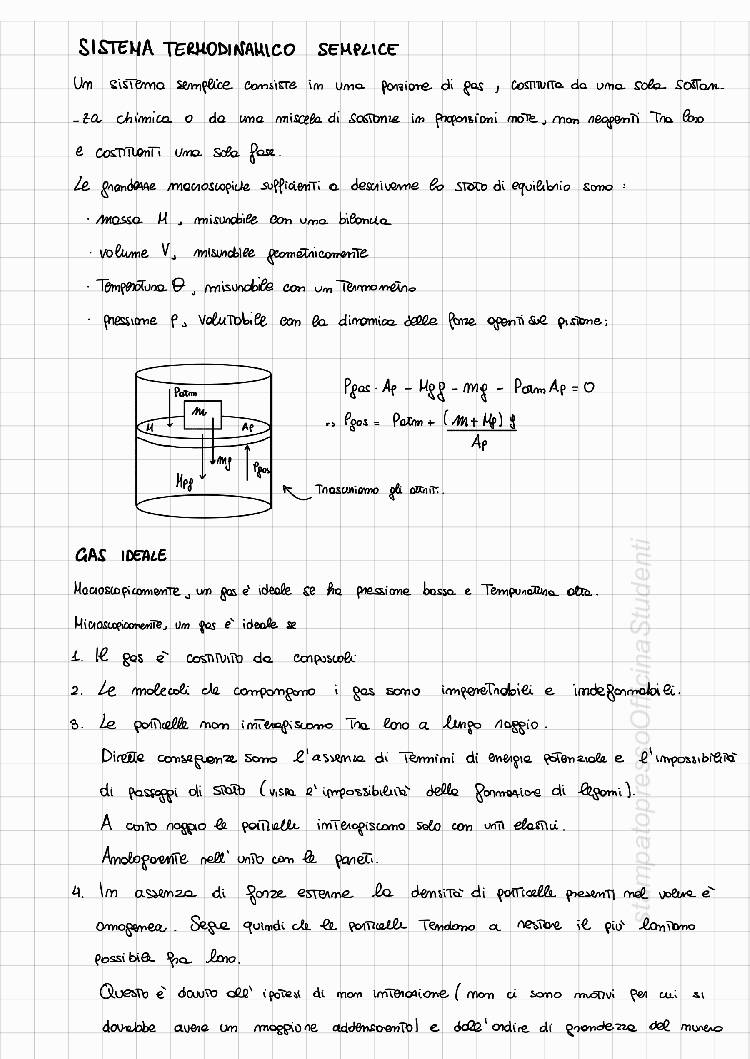 SISTEMA TERMODINAMICO SEMPLICE
Un sistema semplice consiste in una porzione di gas, costituita da una sola sostan
-za chimica o da una miscela di sostanze in proporzioni note, non reagenti tra loro
e costituenti una sola fase.
Le grandezze macroscopiche sufficienti a descriverne lo stato di equilibrio sono:
· massa M, misurabile con una bilancia
· volume V, misurabile geometricamente
· Temperatura θ, misurabile con un Termometro
· pressione p, valutabile con la dinamica delle forze agenti sul pistone:
Pgas · Ap - Mpg - mg - Patm Ap = 0
Pgas = Patm + (m + Mp) g
Ap
Patm
m
M
Ap
mg
Mpg
Pgas
Trascuriamo gli attriti.
GAS IDEALE
Macroscopicamente, un gas è ideale se ha pressione bassa e Temperatura alta.
Microscopicamente, un gas è ideale se
1. Il gas è costituito da corpuscoli
2. Le molecoli che compongono i gas sono impenetrabili e indeformabili.
3. Le particelle non interagiscono tra loro a lungo raggio.
Dirette conseguenze sono l'assenza di Termini di energia potenziale e l'impossibilità
di passaggi di stato (vista l'impossibilità della formazione di legami).
A corto raggio le particelle interagiscono solo con urti elastici.
Analogamente nell'urto con le pareti.
4. In assenza di forze esterne la densità di particelle presenti nel volume è
omogenea. Segue quindi che le particelle Tendono a restare il più lontano
possibile fra loro.
Questo è dovuto all'ipotesi di non interazione (non ci sono motivi per cui si
dovrebbe avere un maggiore addensamento) e dall'ordine di grandezza del numero
stampatopressoOfficinaStudenti